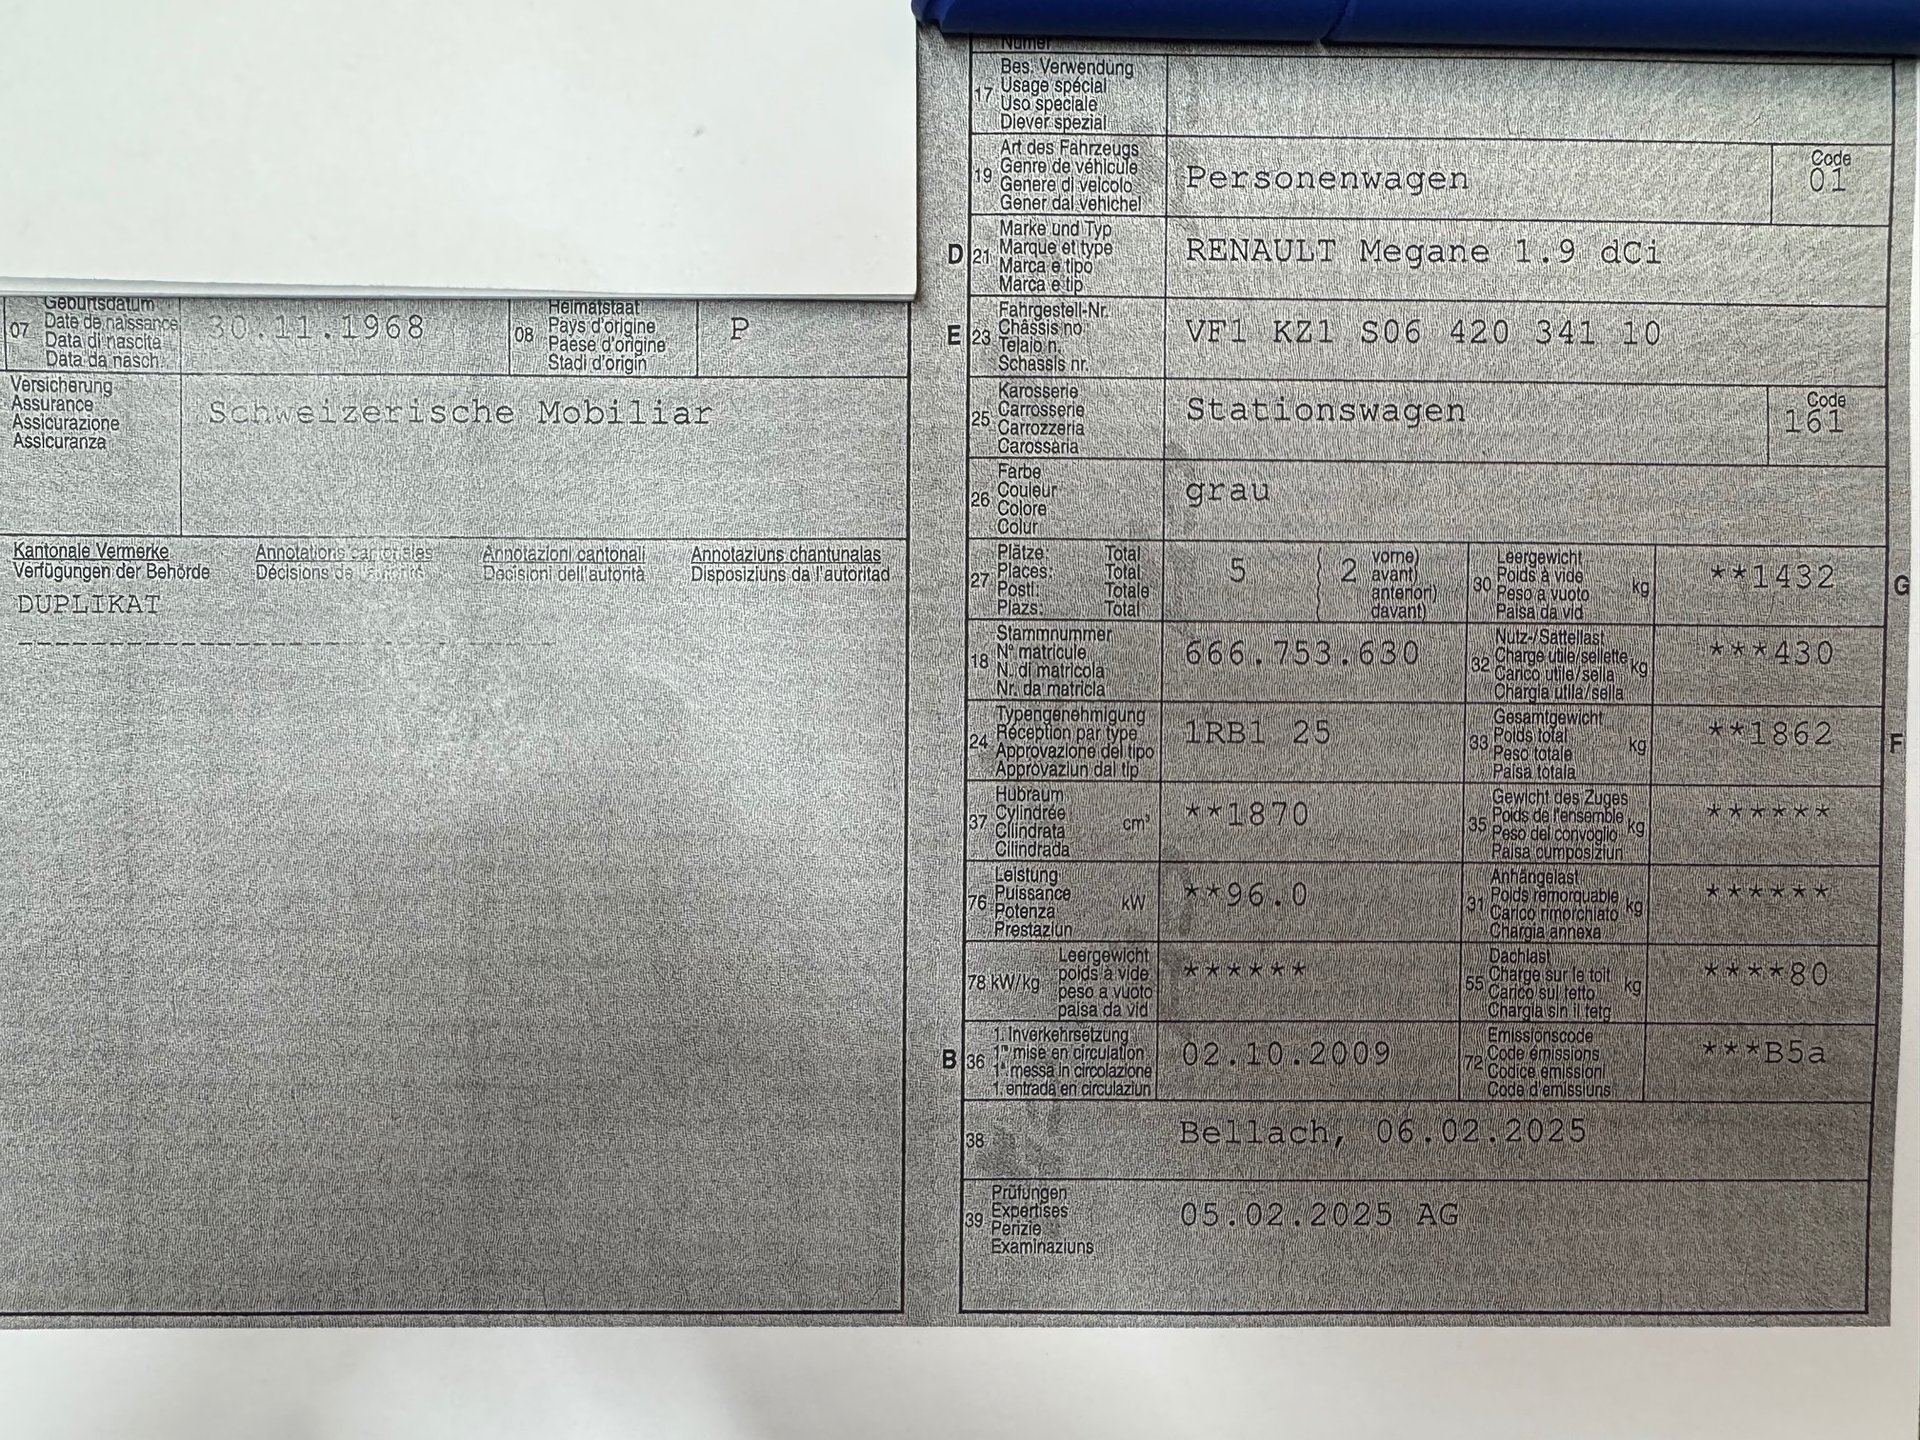 Geburtsdatum
07 Date de naissance 30.11.1968
Data di nascita
Data da nasch.
Heimatstaat
08 Pays d'origine P
Paese d'origine
Stadi d'origin
Versicherung
Assurance Schweizerische Mobiliar
Assicurazione
Assicuranza
Kantonale Vermerke Annotations cantonales Annotazioni cantonali Annotaziuns chantunalas
Verfügungen der Behörde Décisions de l'autorité Decisioni dell'autorità Disposiziuns da l'autoritad
DUPLIKAT
Numer
Bes. Verwendung
17 Usage spécial
Uso speciale
Diever spezial
Art des Fahrzeugs Code
19 Genre de véhicule Personenwagen 01
Genere di veicolo
Gener dal vehichel
Marke und Typ
D 21 Marque et type RENAULT Megane 1.9 dCi
Marca e tipo
Marca e tip
Fahrgestell-Nr.
E 23 Châssis no VF1 KZ1 S06 420 341 10
Telaio n.
Schassis nr.
Karosserie Code
25 Carrosserie Stationswagen 161
Carrozzeria
Carossaria
Farbe
26 Couleur grau
Colore
Colur
Plätze: Total vorne)
27 Places: Total 5 ( 2 avant)
Posti: Totale anteriori)
Plazs: Total davant)
Leergewicht
30 Poids à vide kg **1432 G
Peso a vuoto
Paisa da vid
Stammnummer
18 N° matricule 666.753.630
N. di matricola
Nr. da matricla
Nutz-/Sattellast
32 Charge utile/sellette kg ***430
Carico utile/sella
Chargia utila/sella
Typengenehmigung
24 Réception par type 1RB1 25
Approvazione del tipo
Approvaziun dal tip
Gesamtgewicht
33 Poids total kg **1862 F
Peso totale
Paisa totala
Hubraum
37 Cylindrée cm³ **1870
Cilindrata
Cilindrada
Gewicht des Zuges
35 Poids de l'ensemble kg ******
Peso del convoglio
Paisa cumposiziun
Leistung
76 Puissance kW **96.0
Potenza
Prestaziun
Anhängelast
31 Poids remorquable kg ******
Carico rimorchiato
Chargia annexa
Leergewicht
78 kW/kg poids à vide ******
peso a vuoto
paisa da vid
Dachlast
55 Charge sur le toit kg ****80
Carico sul tetto
Chargia sin il tetg
1. Inverkehrsetzung
B 36 1re mise en circulation 02.10.2009
1a messa in circolazione
1. entrada en circulaziun
Emissionscode
72 Code émissions ***B5a
Codice emissioni
Code d'emissiuns
38 Bellach, 06.02.2025
Prüfungen
39 Expertises 05.02.2025 AG
Perizie
Examinaziuns